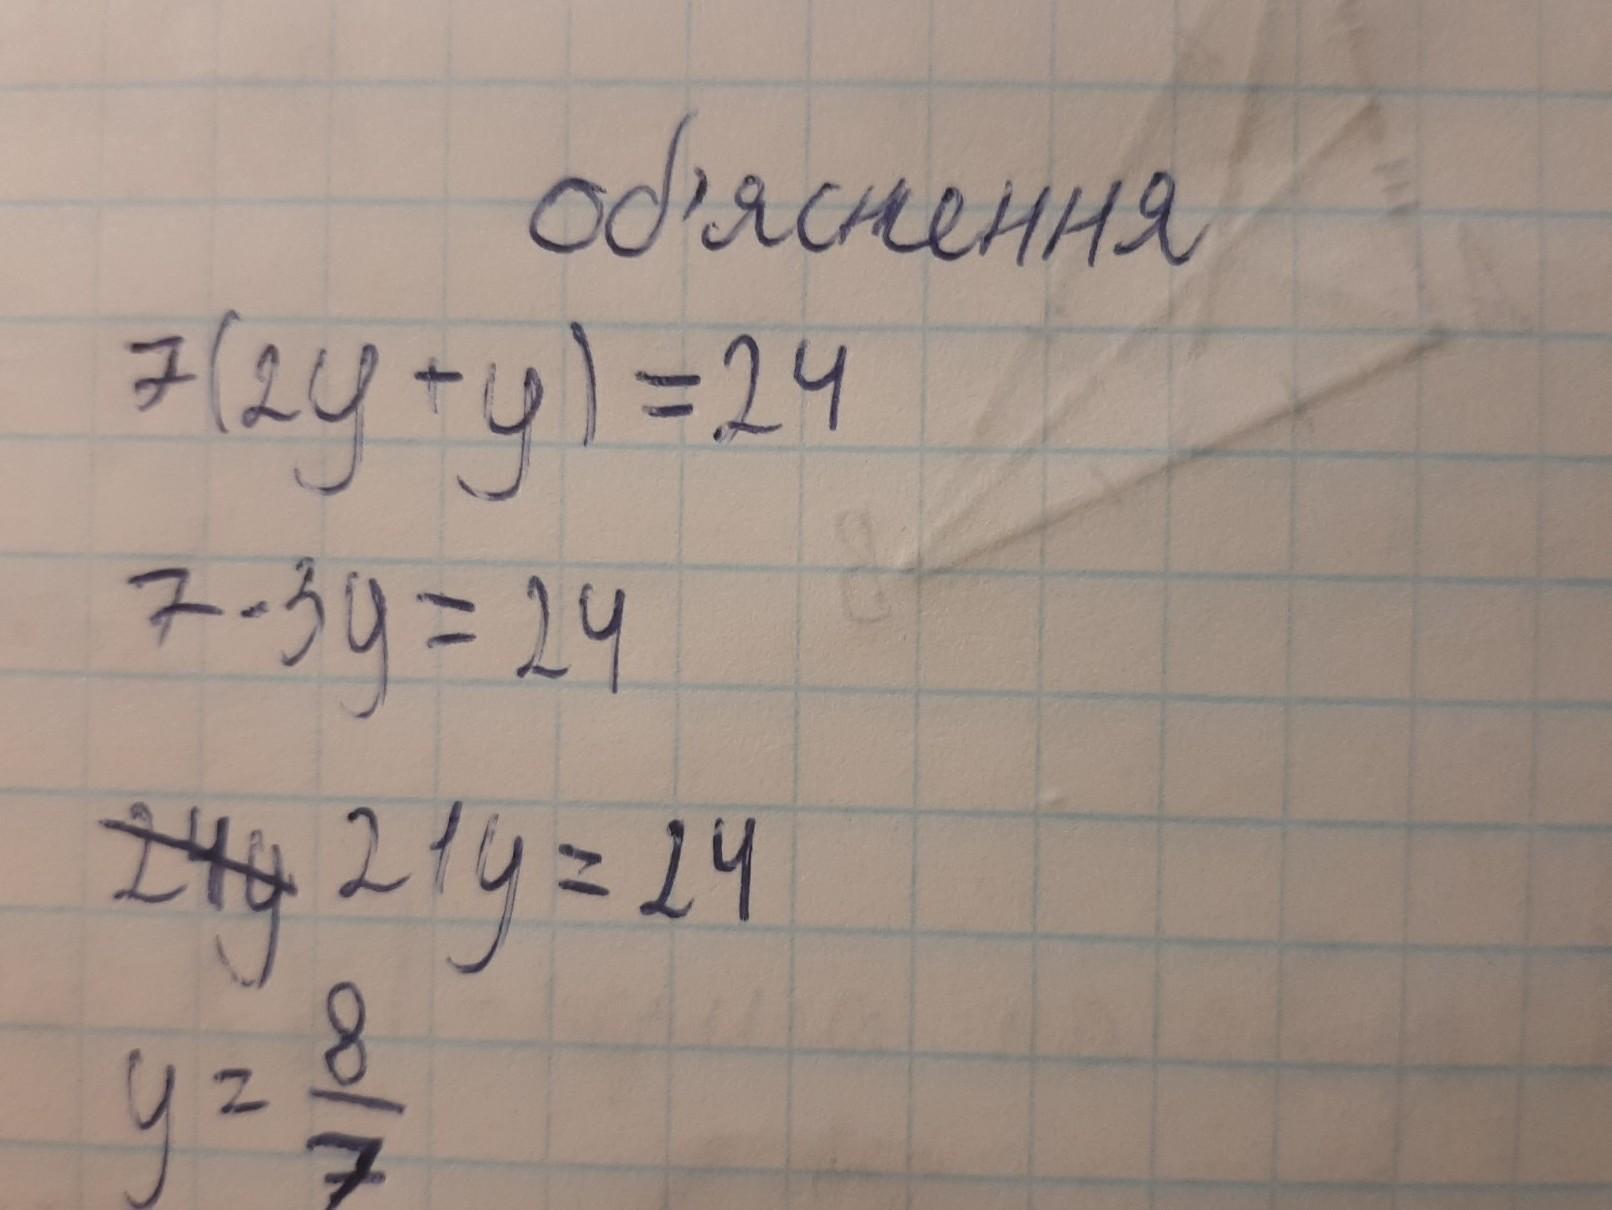 об'яснення
7(2y + y) = 24
7·3y = 24
~~24y~~ 21y = 24
y = 8/7